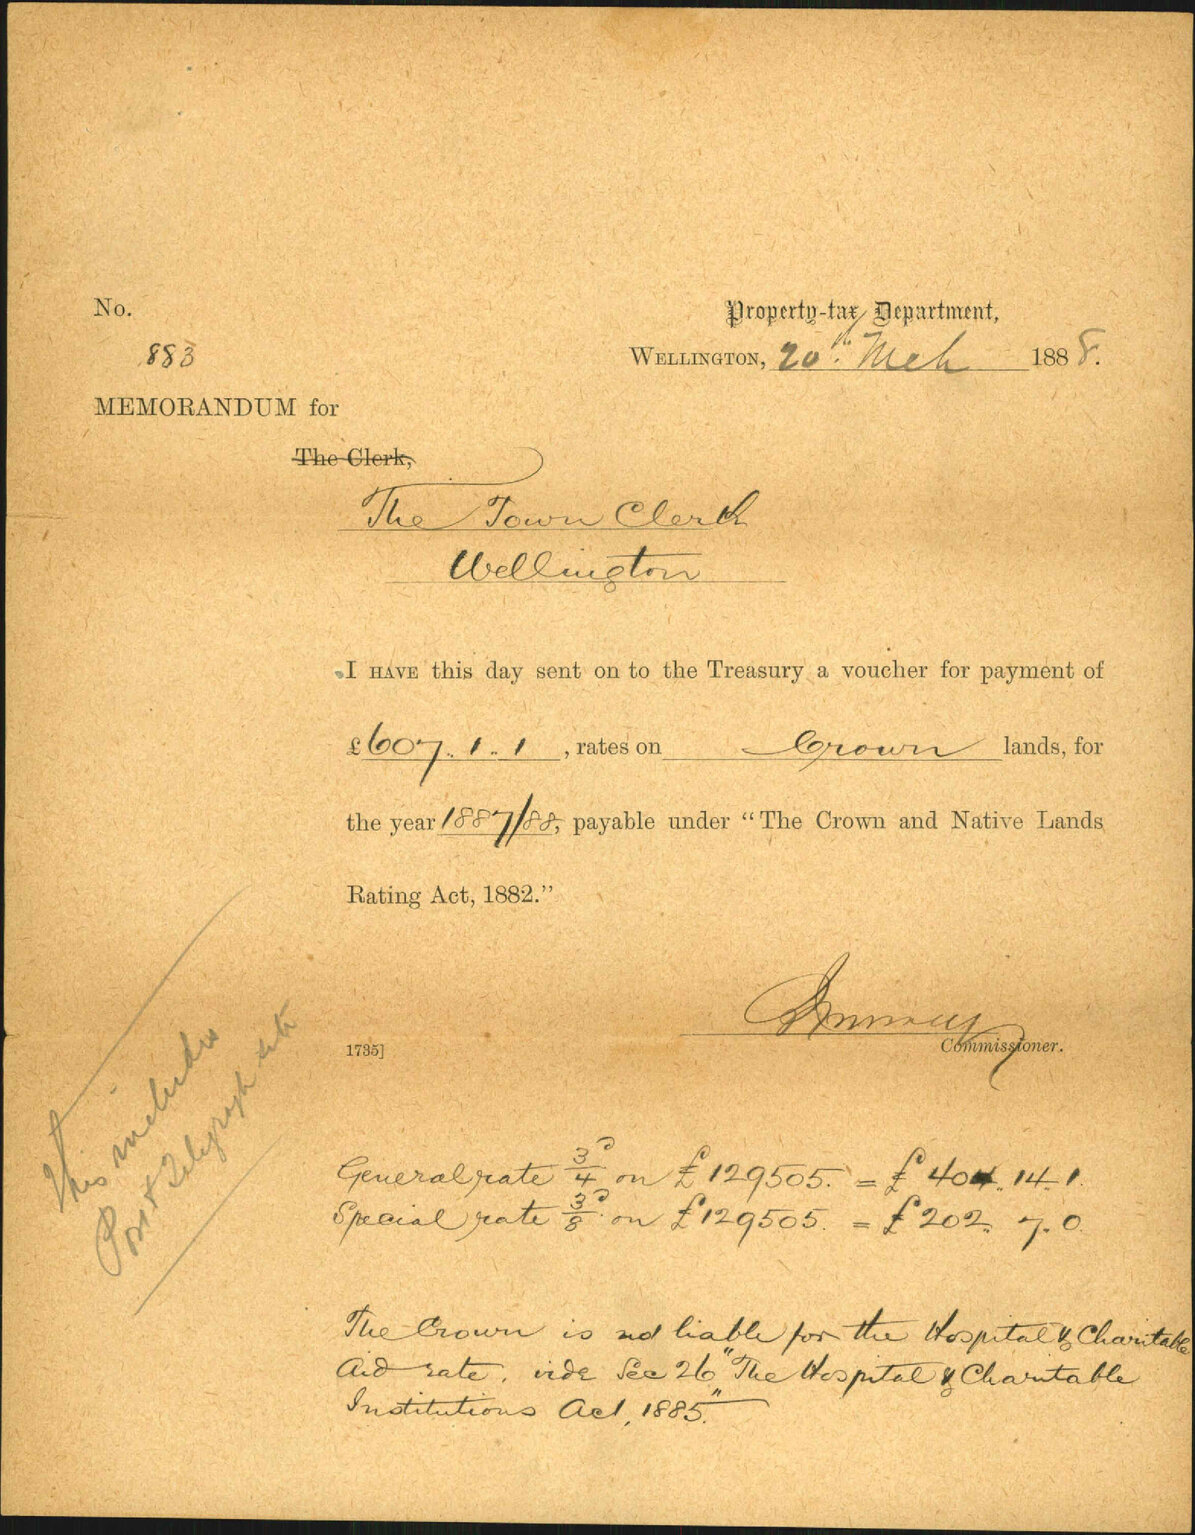 No.
883
Property-tax Department,
Wellington, 20th Mch 1888.
MEMORANDUM for
The Clerk,
The Town Clerk
Wellington
I HAVE this day sent on to the Treasury a voucher for payment of
£607.. 1.. 1, rates on Crown lands, for
the year 1887/88, payable under "The Crown and Native Lands
Rating Act, 1882."
Commissioner.
1735]
This includes
Post & Telegraph
General rate 3/4d on £129505. = £404.. 14. 1.
Special rate 3/8d. on £129505. = £202.. 7. 0
The Crown is not liable for the Hospital & Charitable
Aid rate, vide Sec 26 "The Hospital & Charitable
Institutions Act, 1885."